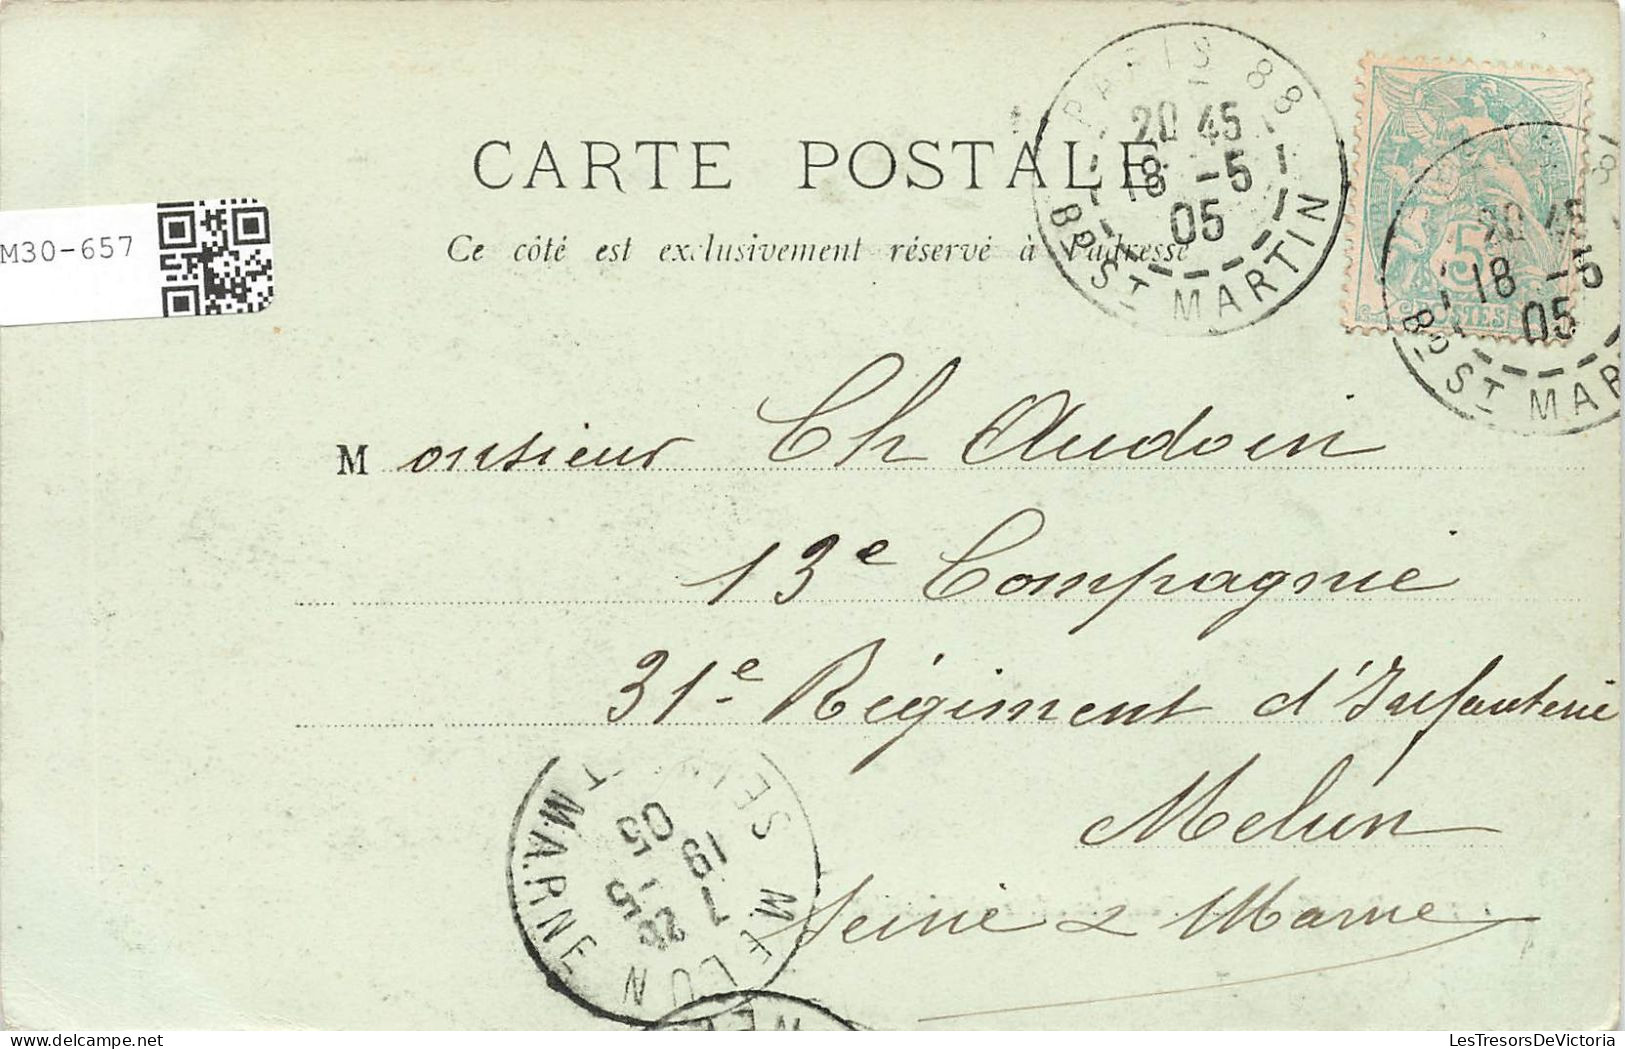 PARIS 88
20 45
18 -5
05
Bd ST MARTIN
CARTE POSTALE
Ce côté est exclusivement réservé à l'adresse
M30-657
5
POSTES
20 45
18 -5
05
Bd ST MAR
Monsieur Ch Audoin
13e Compagnie
31e Régiment d'Infanterie
Melun
Seine & Marne
MELUN
SEINE ET MARNE
7
19 - 5
05
LesTresorsDeVictoria